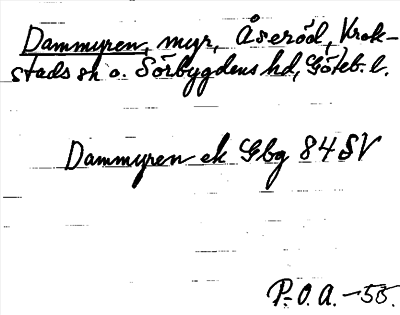 Dammyren, myr, Åseröd, Krok-
stads sn o. Sörbygdens hd, Göteb. l.
Dammyren ek Gbg 84 SV
P.O.A. -55.